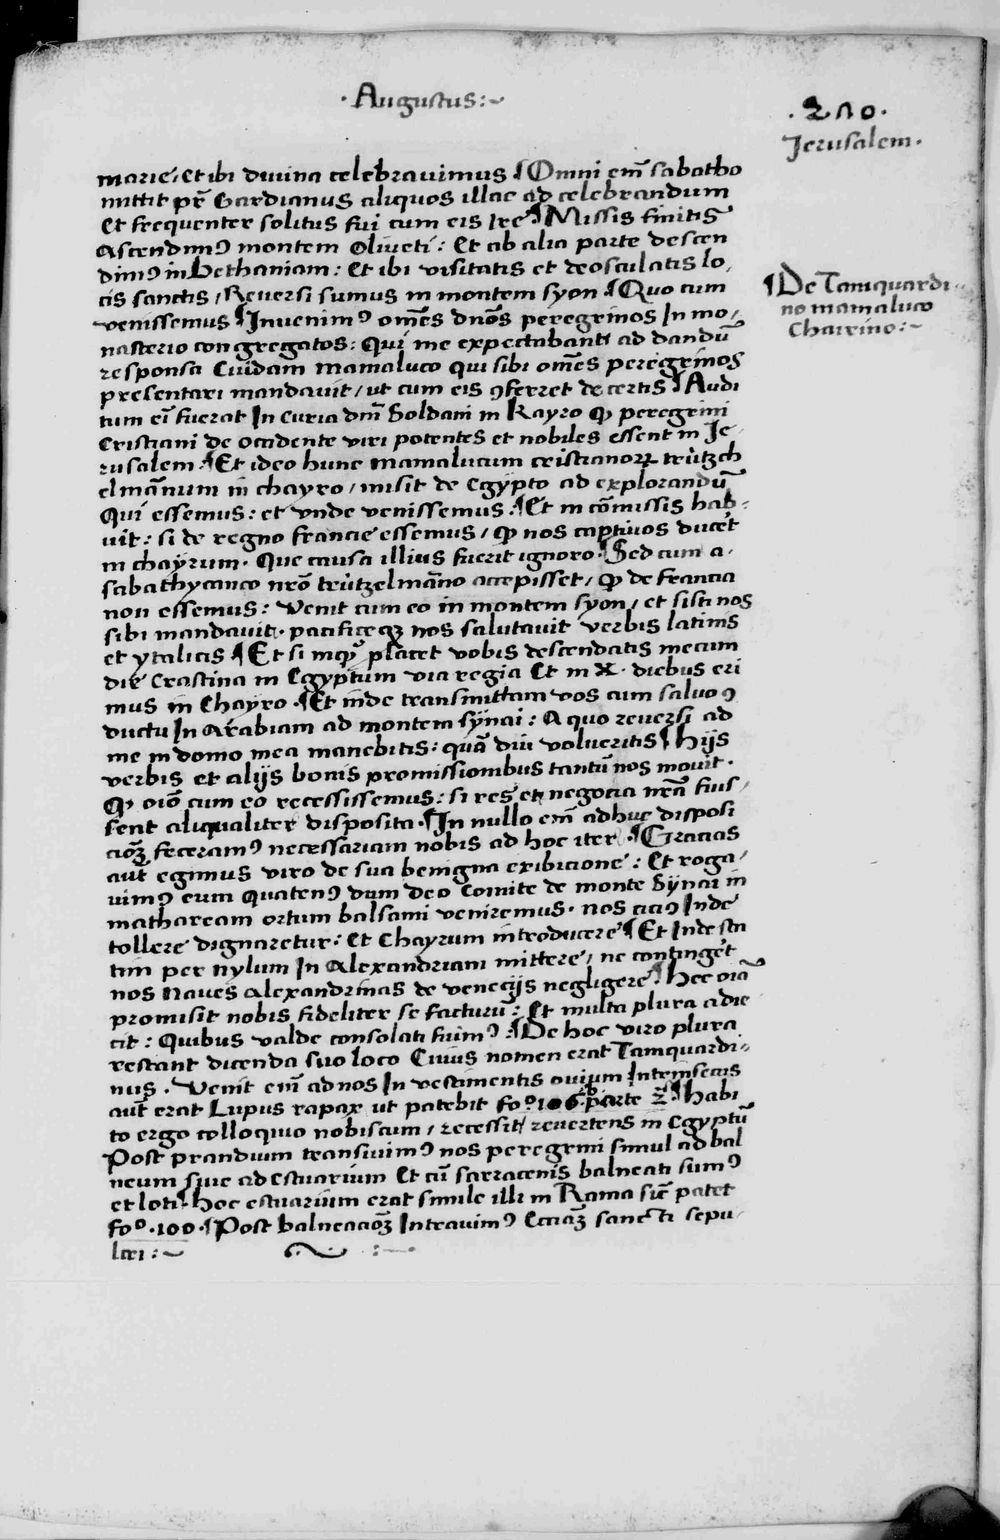 ·Augustus:~
·210·
Jerusalem·
marie, et ibi divina celebravimus ¶Omni em̄ sabatho
mittit pr̄ Gardianus aliquos illac ad celebrandum
Et frequenter solitus fui cum eis Ire ¶Missis finitis
Ascendimꝰ montem Oliveti: Et ab alia parte descen
dimꝰ in Bethaniam: Et ibi visitatis et deosculatis lo,
cis sanctis, Reversi sumus in montem syon ¶Quo cum
venissemus ¶Invenimꝰ om̄es dn̄os peregrinos In mo,
nasterio congregatos: Qui me expectabant ad dandū
responsa Cuidam mamaluco qui sibi om̄es peregrinos
presentari mandavit, ut cum eis ꝯferret de certis ¶Audi
tum em̄ fuerat In Curia dn̄i Soldani in Kayro ꝙ peregrini
Cristiani de Occidente viri potentes et nobiles essent in Je-
rusalem ¶Et ideo hunc mamalucum cristianoꝝ trùtzch
elmānum in chayro, misit de Egypto ad explorandū
Qui essemus: et unde venissemus: ¶Et in cōmissis hab-
uit: si de regno francie essemus, ꝙ nos captivos duceret
in chayrum· Que causa illius fuerit ignoro· ¶Sed cum a,
sabathytanco nr̄o trùtzelmāno accepisset, ꝙ de francia
non essemus: venit cum eo in montem syon, et sisti nos
sibi mandavit· pacificeqꝫ nos salutavit verbis latinis
et ytalicis ¶Et si inqͥ placet vobis descendatis mecum
die Crastina in Egyptum via regia Et in X· diebus eri
mus in Chayro ·¶Et inde transmittam vos cum salvo ꝯ
ductu In Arabiam ad montem synai: A quo reversi ad
me in domo mea manebitis: quā diu volueritis ¶hijs
verbis et alijs bonis promissionibus tantū nos movit·
Qꝙ oīo cum eo recessissemus: si res et negocia nr̄a fuis,
sent aliqualiter disposita·¶In nullo em̄ adhuc disposi
cioꝫ feceramꝰ necessariam nobis ad hoc iter·¶Gracias
aut̄ egimus viro de sua benigna exibicione: Et roga,
vimꝰ eum quatenꝰ dum deo Comite de monte Synai in
mathaream ortum balsami veniremus· nos citiꝰ Inde
tollere dignaretur: et Chayrum introducere ¶Et Inde sta
tim per nylum In Alexandriam mittere, ne contingēt
nos Naves Alexandrinas de venecijs negligere ¶hec oīa
promisit nobis fideliter se facturū: Et multa plura adie
cit: Quibus valde consolati fuimꝰ: ¶De hoc viro plura
restant dicenda suo loco Cuius nomen erat Tamquardi-
nus· Venit em̄ ad nos In vestimentis ovium Intrinsecus
aut̄ erat Lupus rapax ut patebit foº·106· parte 2ᵃ ¶habi
to ergo colloquio nobiscum, recessit revertens in Egyptū
Post prandium transivimꝰ nos peregrini simul ad bal
neum sive ad estuarium Et cū sarracenis balneati sumꝰ
et loti· hoc estuarium erat simile illi in Rama sic̄ patet
foº·100·¶Post balneacioꝫ Intravimꝰ Ecciāꝫ sancti sepu,
lcri:~
¶De Tamquardi-
no mamaluco
Chairino:~